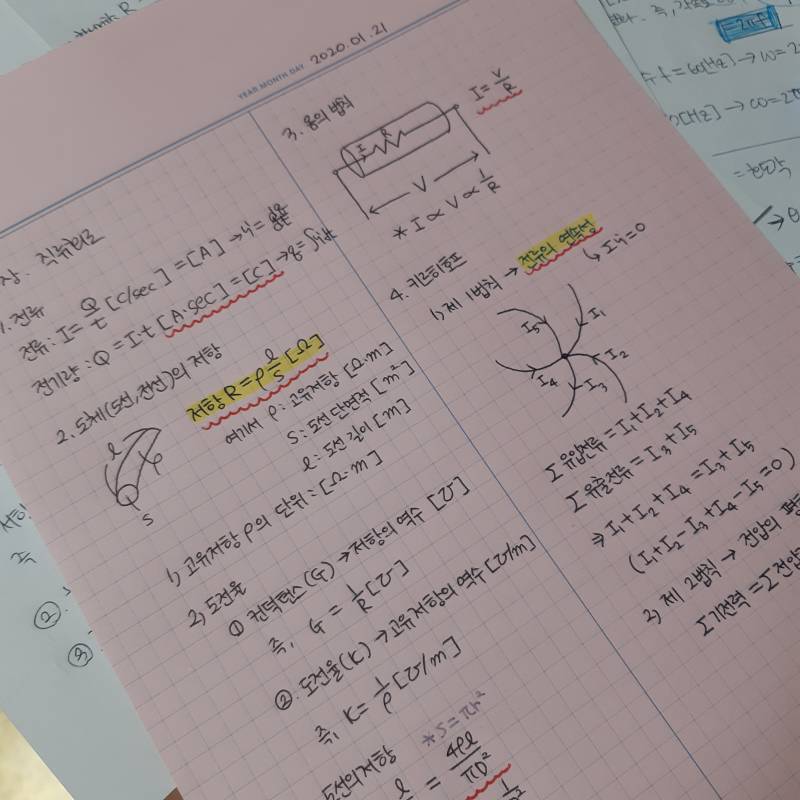 YEAR MONTH DAY 2020.01.21
장. 직류회로
1. 전류
전류 : I = Q/t [C/sec] = [A] → i = dq/dt
전기량 : Q = I·t [A·sec] = [C] → q = ∫i dt
2. 도체(도선, 전선)의 저항
l
S
저항 R = ρ l/S [Ω]
여기서 ρ : 고유저항 [Ω·m]
S : 도선 단면적 [m²]
l : 도선 길이 [m]
1) 고유저항 ρ의 단위 : [Ω·m]
2) 도전율
① 컨덕턴스(G) → 저항의 역수 [℧]
즉, G = 1/R [℧]
②. 도전율(K) → 고유저항의 역수 [℧/m]
즉, K = 1/ρ [℧/m]
도선의 저항 *S = πr²
= 4ρl/πD²
3. 옴의 법칙
I = V/R
I R
V
* I ∝ V ∝ 1/R
4. 키르히호프
1) 제 1법칙 → 전류의 연속성
↳ Σi = 0
I₅ I₁
I₂
I₄ I₃
Σ유입전류 = I₁+I₂+I₄
Σ유출전류 = I₃+I₅
⇒ I₁+I₂+I₄ = I₃+I₅
(I₁+I₂-I₃+I₄-I₅=0)
2) 제 2법칙 → 전압의 평
Σ기전력 = Σ전압
=2πf
f=60[Hz] → ω=2
[Hz] → ω=2π
즉
②
③